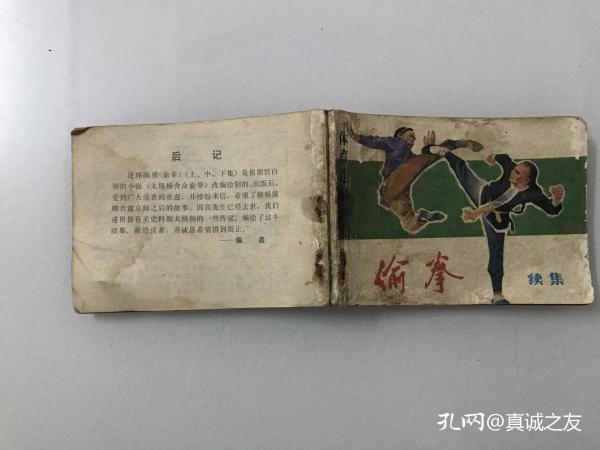 后记
连环画册《偷拳》（上、中、下集）是根据宫白
羽的小说《太极杨舍命偷拳》改编绘制的。出版后，
受到广大读者的欢迎，并纷纷来信，希望了解杨露
蝉名震京师之后的故事。因宫先生已经去世，我们
遂根据有关史料和太极杨的一些传说，编绘了这本
续集，献给读者，并诚恳希望得到指正。
——编者
体育
偷拳
续集
孔网@真诚之友